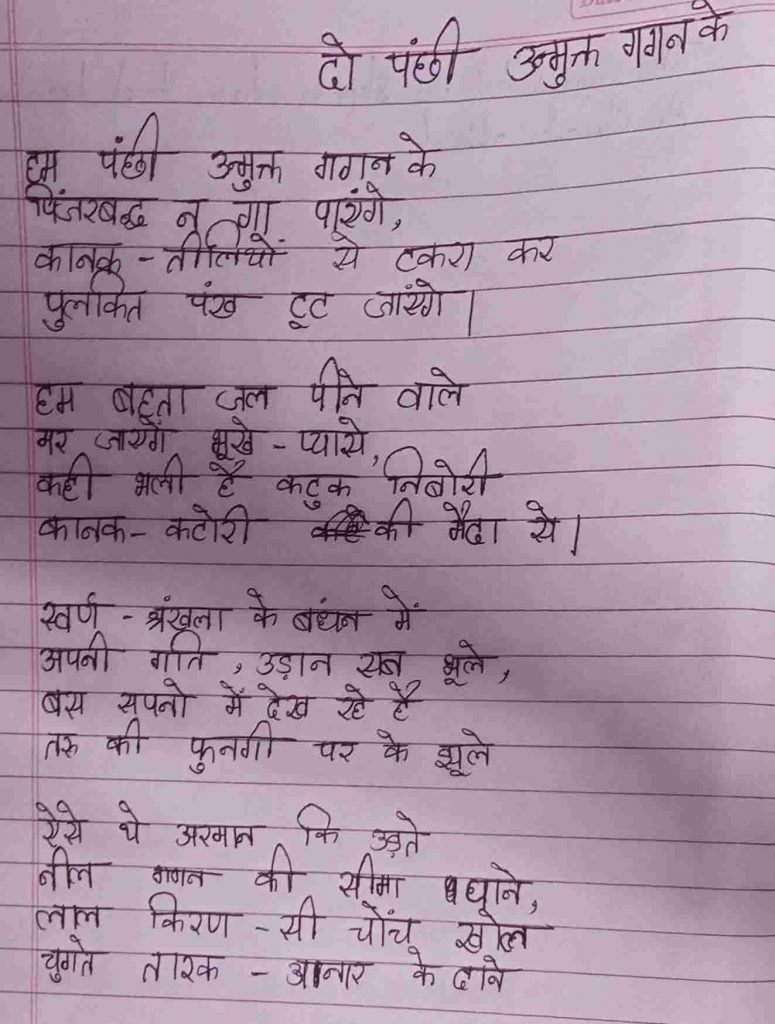 दो पंछी उन्मुक्त गगन के
हम पंछी उन्मुक्त गगन के
पिंजरबद्ध न गा पाएंगे,
कानक - तीलियों से टकरा कर
पुलकित पंख टूट जाएंगे |
हम बहता जल पीने वाले
मर जाएंगे भूखे - प्यासे,
कही भली है कटुक निबोरी
कानक - कटोरी की मैदा से |
स्वर्ण - श्रंखला के बंधन में
अपनी गति , उड़ान सब भूले,
बस सपनो में देख रहे है
तरु की फुनगी पर के झूले
ऐसे थे अरमान कि उड़ते
नील गगन की सीमा पाने,
लाल किरण - सी चोंच खोल
चुगते तारक - अनार के दाने